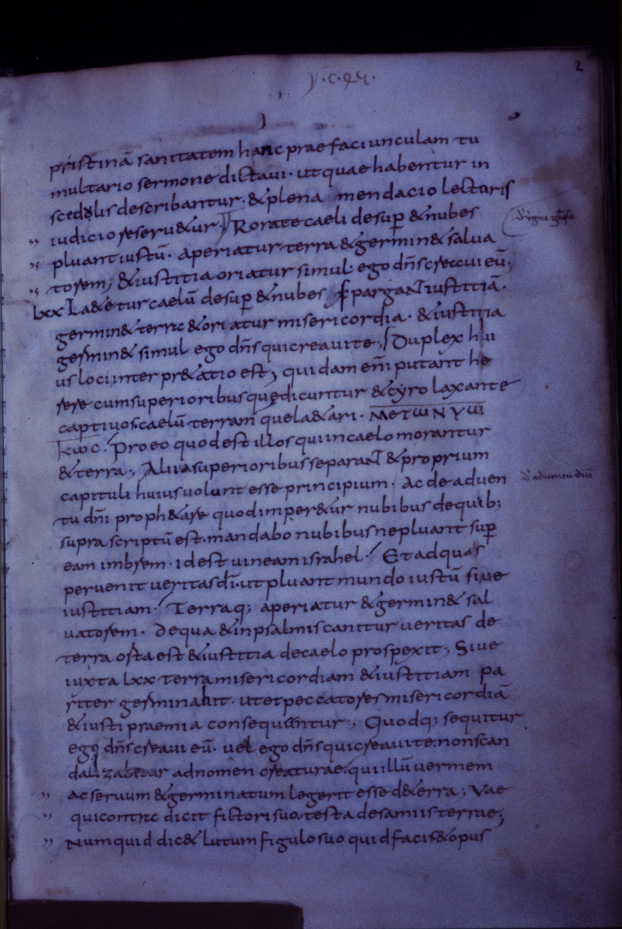 2
pristinā sanitatem hanc prae faciunculam tu
multario sermone dictaui · ut quae habentur in
scedulis describantur · & plena mendacio lectoris
iudicio reseru&ur · Rorate caeli desup & nubes
pluant iustū · aperiatur terra & germin& salua
torem; & iustitia oriatur simul · ego dn̄s creaui eū;
lxx La&etur caelū desup & nubes spargant iustitiā ·
germin& terra & oriatur misericordia · & iustitia
germin& simul ego dn̄s qui creaui te; Duplex hui
us loci interpr&atio est; quidam eni putant he
rere cum superioribus que dicuntur & cyro laxante
captiuos caelū terramq uel a&ari · ΜΕΤωΝΥΜΙ
ΚωC · Pro eo quod est illos qui in caelo morantur
& terra; Alii a superioribus separant & proprium
capituli huius uolunt esse principium · Ac de aduen
d' aduentu dni
tu dn̄i proph&are quod imper&ur nubibus de quib;
supra scriptū est · mandabo nubibus ne pluant sup
eam imbrem · id est uineam israhel · Et ad quas
peruenit ueritas dī · ut pluant mundo iustū siue
iustitiam · Terra q; aperiatur & germin& sal
uatorem · de qua & in psalmis canitur ueritas de
terra orta est & iustitia de caelo prospexit; Siue
iuxta lxx terra misericordiam & iustitiam pa
riter germinabit · ut et peccatores misericordiā
& iusti praemia consequantur; Quodq; sequitur
ego dn̄s creaui eū · uel ego dn̄s qui creaui te · non scan
dalizabitur ad nomen creaturae · qui illū uermem
ac seruum & germinatum legerit esse de terra; Vae
qui contradicit fictori suo · testa de samiis terrae;
Numquid dic& lutum figulo suo quid facis & opus